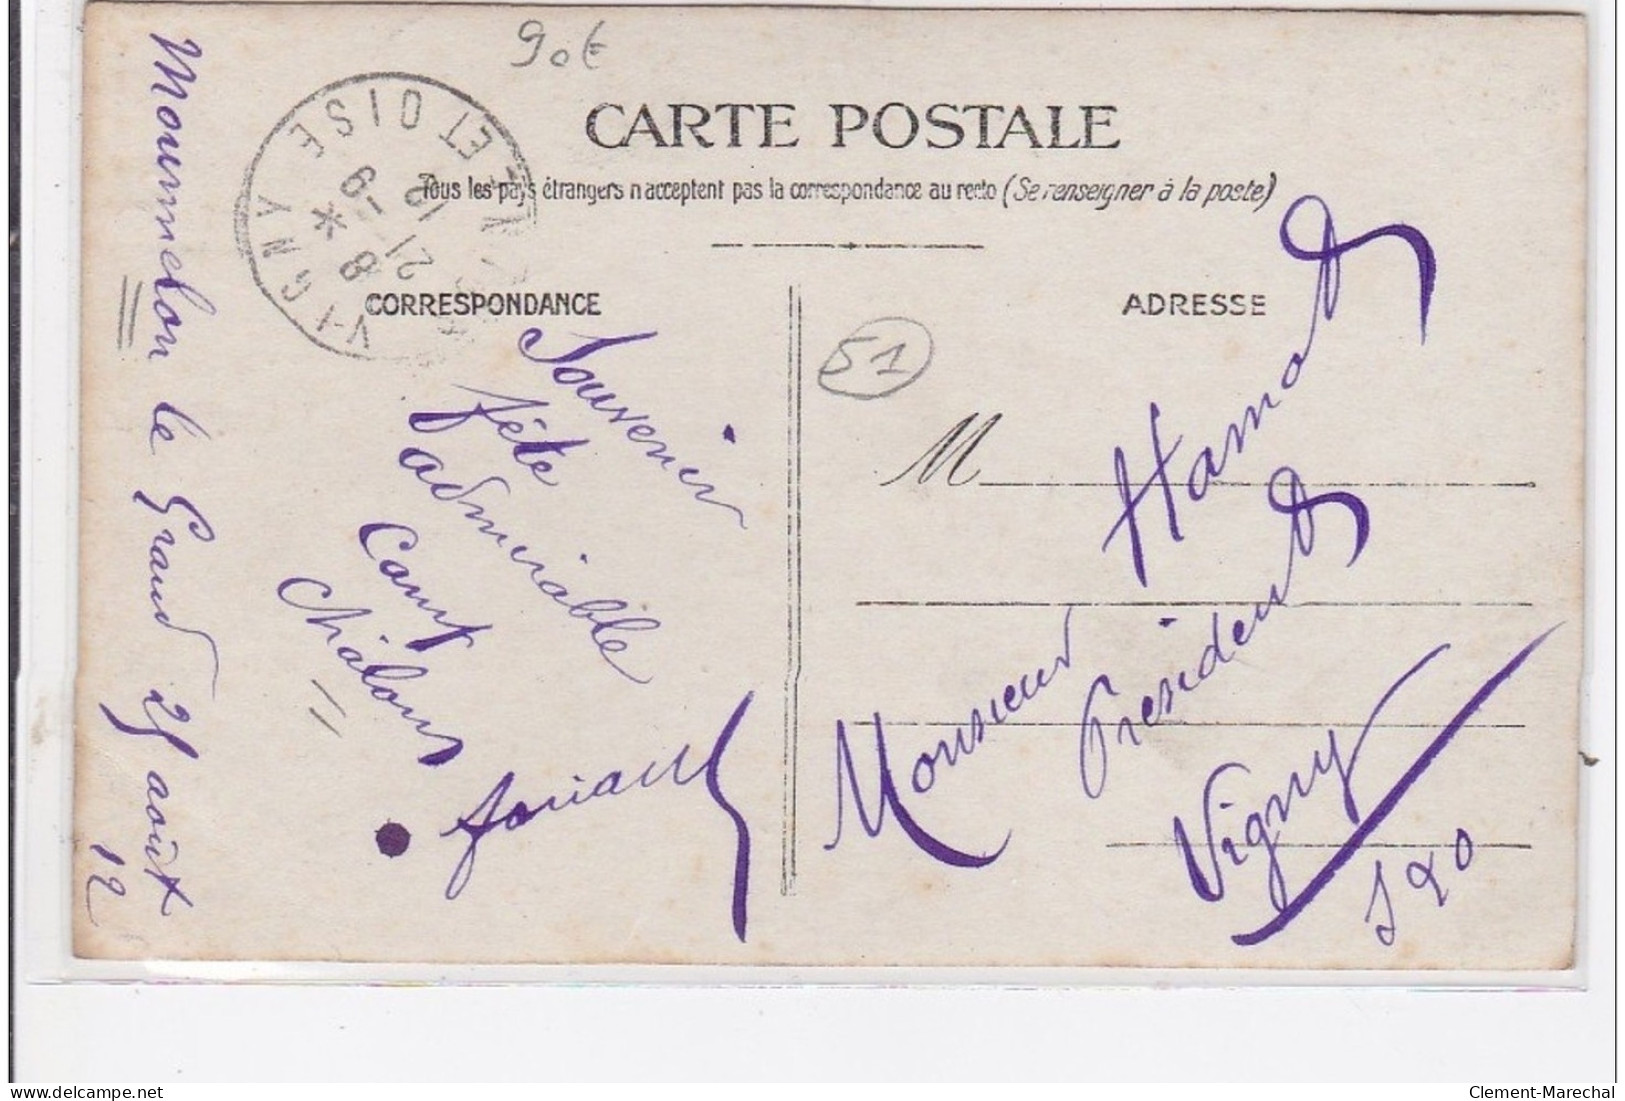 90€
CARTE POSTALE
Tous les pays étrangers n'acceptent pas la correspondance au recto (Se renseigner à la poste)
VIGNY * ET OISE
8 -9
21 12
CORRESPONDANCE
ADRESSE
51
M
Mourmelon le Grand 25 août
12
Souvenir
fête
admirable
Camp
Châlons
Monsieur
Hamot
Président
Vigny
S & O
delcampe.net
Clement-Marechal